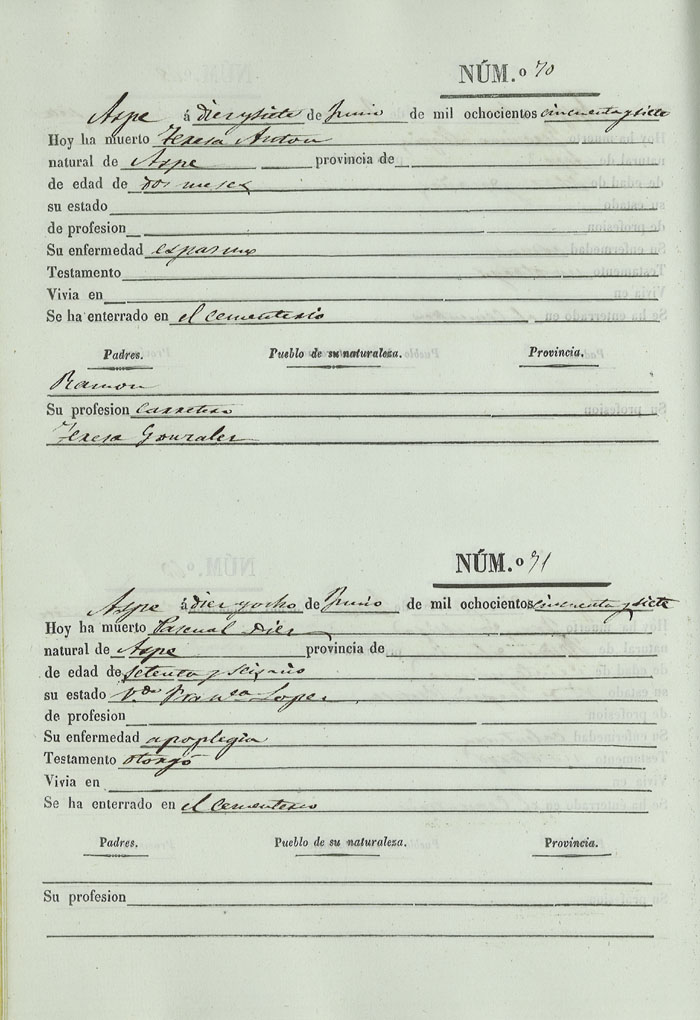 NÚM.º 70
Aspe á diez y siete de Junio de mil ochocientos cincuenta y siete
Hoy ha muerto Teresa Anton
natural de Aspe provincia de
de edad de dos meses
su estado
de profesion
Su enfermedad espasmo
Testamento
Vivia en
Se ha enterrado en el cementerio
Padres. Pueblo de su naturaleza. Provincia.
Ramon
Su profesion carretero
Teresa Gonzalez
NÚM.º 71
Aspe á diez y ocho de Junio de mil ochocientos cincuenta y siete
Hoy ha muerto Pascual Diez
natural de Aspe provincia de
de edad de setenta y seis año
su estado V.do Fran.ca Lopez
de profesion
Su enfermedad apoplegia
Testamento otorgó
Vivia en
Se ha enterrado en el cementerio
Padres. Pueblo de su naturaleza. Provincia.
Su profesion